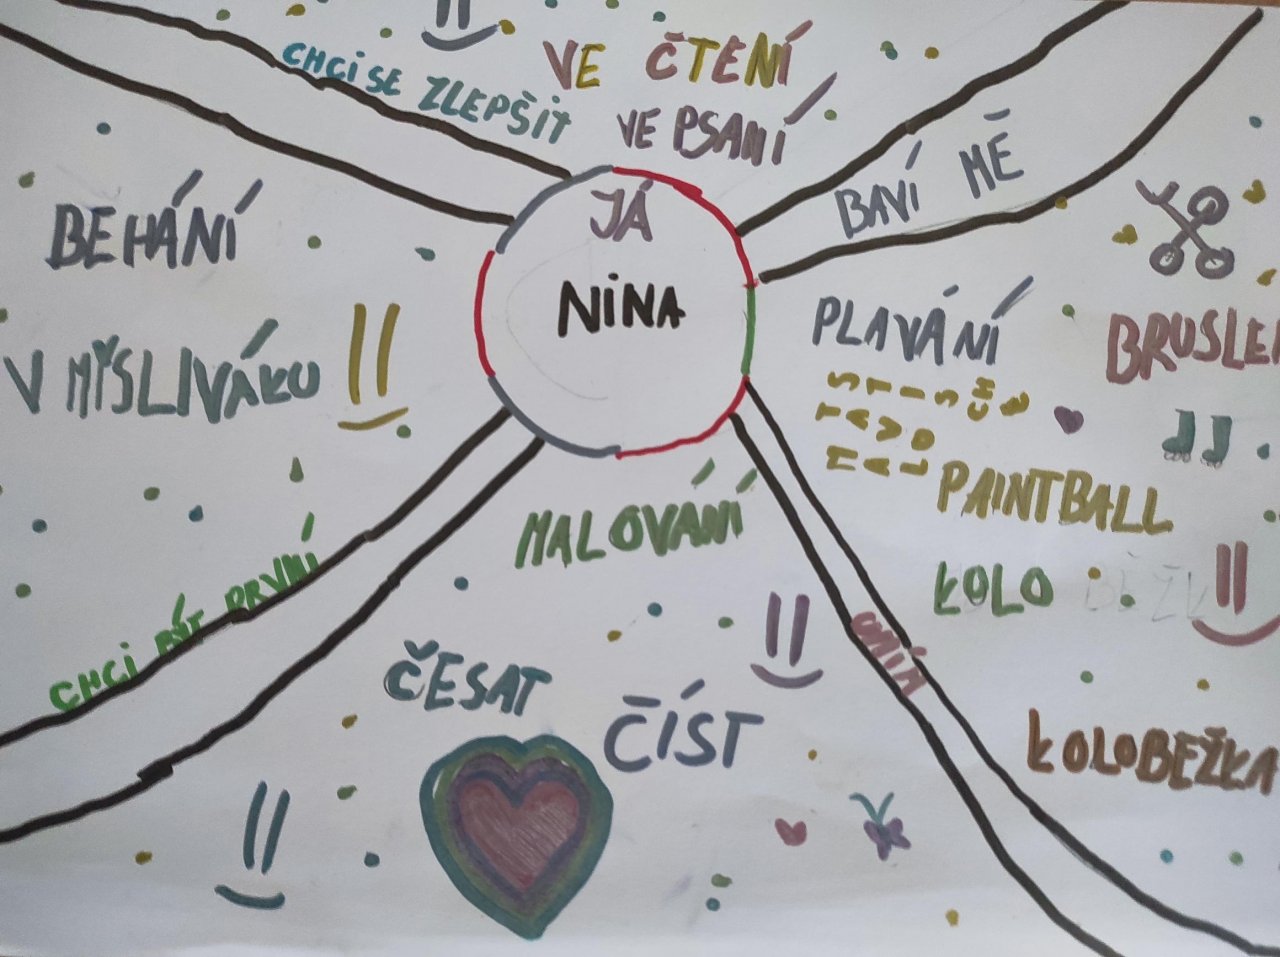 CHCi SE ZLEPŠiT
VE ČTENÍ
VE PSANÍ
BAVÍ MĚ
JÁ
NiNA
BEHÁNÍ
V MYSLIVÁKU
PLAVÁNÍ
BRUSLE
PAINTBALL
KOLO
KOLOBEŽKA
MALOVÁNÍ
CHCi BÝT PRVNÍ
UMÍM
ČESAT
ČÍST